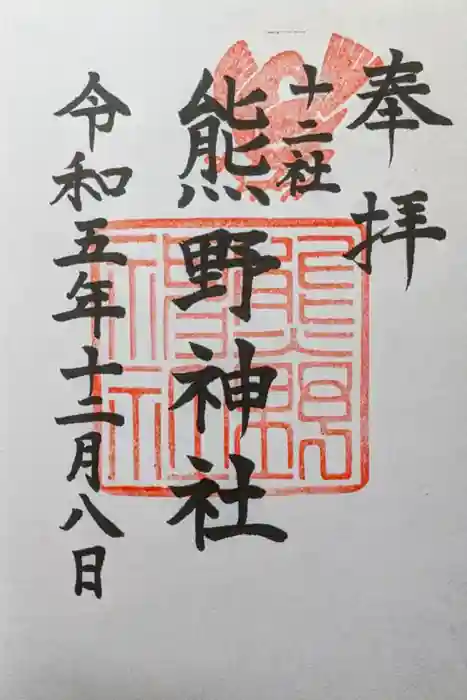 奉拝
十二社
熊野神社
令和五年十二月八日
熊野神社